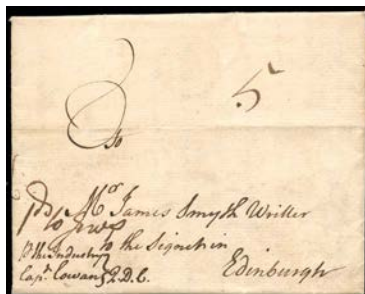 To
5
Mr James Smyth Writer
to the Signet in
Edinburgh
p the Industry
Capt Cowan Q.D.C.